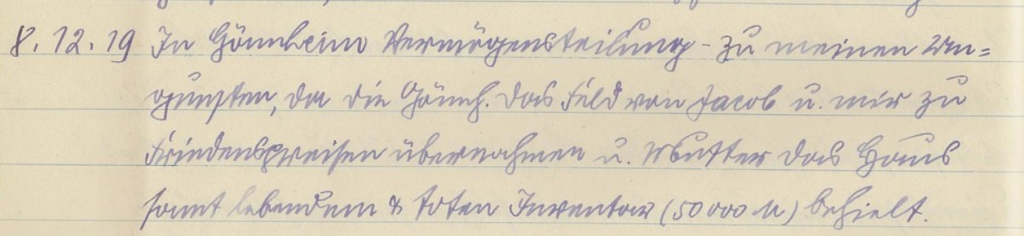 8.12.19 In Gönnheim Vermögensteilung - zu meinen Un=
gunsten, da die Gönnh. das Feld von Jacob u. mir zu
Friedenspreisen übernahmen u. Mutter das Haus
samt lebendem & toten Inventar (50 000 M) behielt.